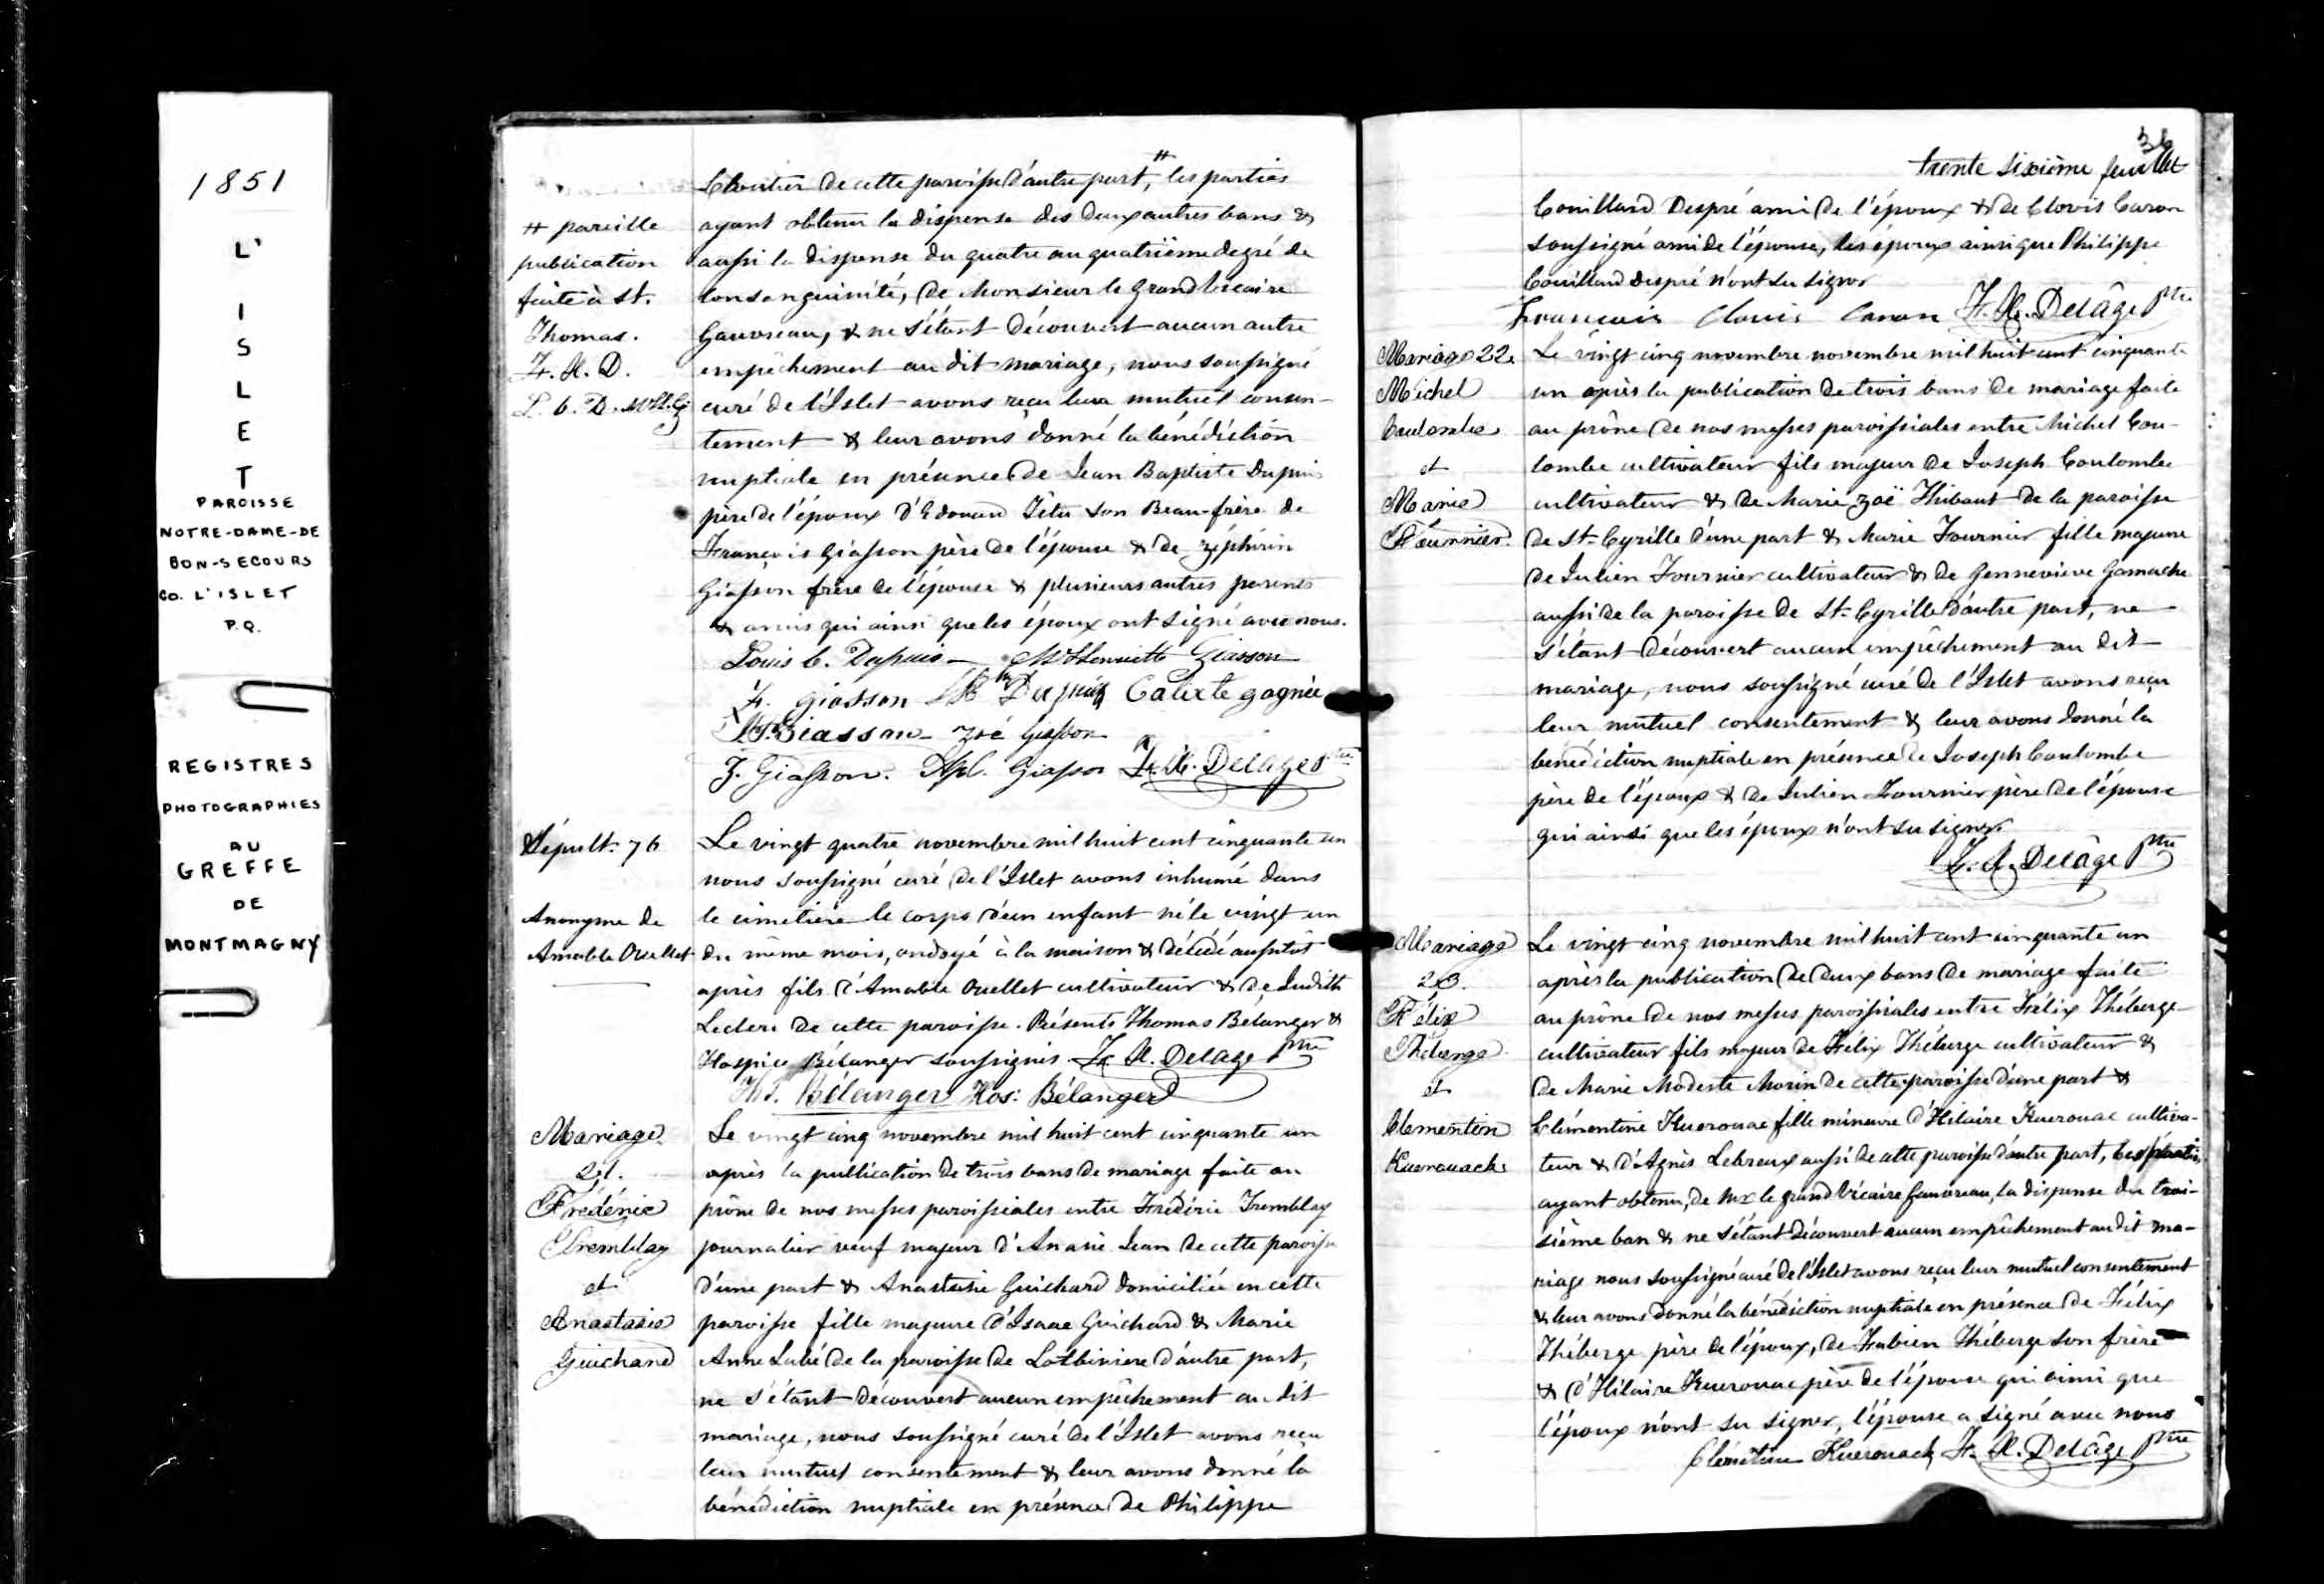 1851
L'
I
S
L
E
T
PAROISSE
NOTRE-DAME-DE
BON-SECOURS
CO. L'ISLET
P.Q.
REGISTRES
PHOTOGRAPHIES
AU
GREFFE
DE
MONTMAGNY
Cloutier de cette paroisse d'autre part, # les parties
ayant obtenu la dispense des deux autres bans &
aussi la dispense du quatre au quatrième degré de
consanguinité, de Monsieur le Grand Vicaire
Gauvreau, & ne s'étant découvert aucun autre
empêchement au dit mariage, nous soussigné
curé de l'Islet avons reçu leur mutuel consen-
tement & leur avons donné la bénédiction
nuptiale en présence de Jean Baptiste Dupuis
père de l'époux d'Edouard Têtu son Beau-frère de
François Giasson père de l'épouse & de Zéphirin
Giasson frère de l'épouse & plusieurs autres parents
& amis qui ainsi que les époux ont signé avec nous.
# pareille
publication
faite à St.
Thomas.
F. X. D.
L. C. D. M H. G
Louis C. Dupuis M Henriette Giasson
F. Giasson J B Dupuis Calixte gagnée
Giasson Zoé Giasson
Z. Giasson. Giasson F. X. Delâge Ptre
Sépult. 76
Anonyme de
Amable Ouellet
Le vingt quatre novembre mil huit cent cinquante un
nous soussigné curé de l'Islet avons inhumé dans
le cimetière le corps d'un enfant né le vingt un
du même mois, ondoyé à la maison & décédé aussitôt
après fils d'Amable Ouellet cultivateur & de Judith
Leclerc de cette paroisse. Présents Thomas Bélanger &
Hospice Bélanger soussignés. F. X. Delâge Ptre
Ths. Bélanger Hos: Bélanger
Mariage
21.
Frédéric
Tremblay
et
Anastasie
Guichard
Le vingt cinq novembre mil huit cent cinquante un
après la publication de trois bans de mariage faite au
prône de nos messes paroissiales entre Frédéric Tremblay
journalier veuf majeur d'Anasie Jean de cette paroisse
d'une part & Anastasie Guichard domiciliée en cette
paroisse fille majeure d'Isaac Guichard & Marie
Anne Lubé de la paroisse de Lotbiniere d'autre part,
ne s'étant découvert aucun empêchement au dit
mariage, nous soussigné curé de l'Islet avons reçu
leur mutuel consentement & leur avons donné la
bénédiction nuptiale en présence de Philippe
36
trente sixième feuillet
Couillard Despré ami de l'époux & de Clovis Caron
soussigné ami de l'épouse, les époux ainsi que Philippe
Couillard Despré n'ont su signer
François Clovis Caron F. X. Delâge Ptre
Mariage 22.
Michel
Coulombe
et
Marie
Fournier
Le vingt cinq novembre novembre mil huit cent cinquante
un après la publication de trois bans de mariage faite
au prône de nos messes paroissiales entre Michel Cou-
lombe cultivateur fils majeur de Joseph Coulombe
cultivateur & de Marie Zoë Thibaut de la paroisse
de St. Cyrille d'une part & Marie Fournier fille majeure
de Julien Fournier cultivateur & de Genneviève Gamache
aussi de la paroisse de St. Cyrille d'autre part, ne
s'étant découvert aucun empêchement au dit
mariage, nous soussigné curé de l'Islet avons reçu
leur mutuel consentement & leur avons donné la
bénédiction nuptiale en présence de Joseph Coulombe
père de l'époux & de Julien Fournier père de l'épouse
qui ainsi que les époux n'ont su signer.
F. X. Delâge Ptre
Mariage
23.
Félix
Théberge
et
Clémentine
Kuerouack
Le vingt cinq novembre mil huit cent cinquante un
après la publication de deux bans de mariage faite
au prône de nos messes paroissiales entre Félix Théberge
cultivateur fils majeur de Félix Théberge cultivateur &
de Marie Modeste Morin de cette paroisse d'une part &
Clémentine Kuerouac fille mineure d'Hilaire Kuerouac cultiva-
teur & d'Agnès Lebreux aussi de cette paroisse d'autre part, les parties
ayant obtenu, de Mr le grand Vicaire Gauvreau, la dispense du troi-
sième ban & ne s'étant découvert aucun empêchement au dit ma-
riage nous soussigné curé de l'Islet avons reçu leur mutuel consentement
& leur avons donné la bénédiction nuptiale en présence de Félix
Théberge père de l'époux, de Fabien Théberge son frère
& d'Hilaire Kuerouac père de l'épouse qui ainsi que
l'époux n'ont su signer, l'épouse a signé avec nous
Clémentine Kuerouack F. X. Delâge Ptre